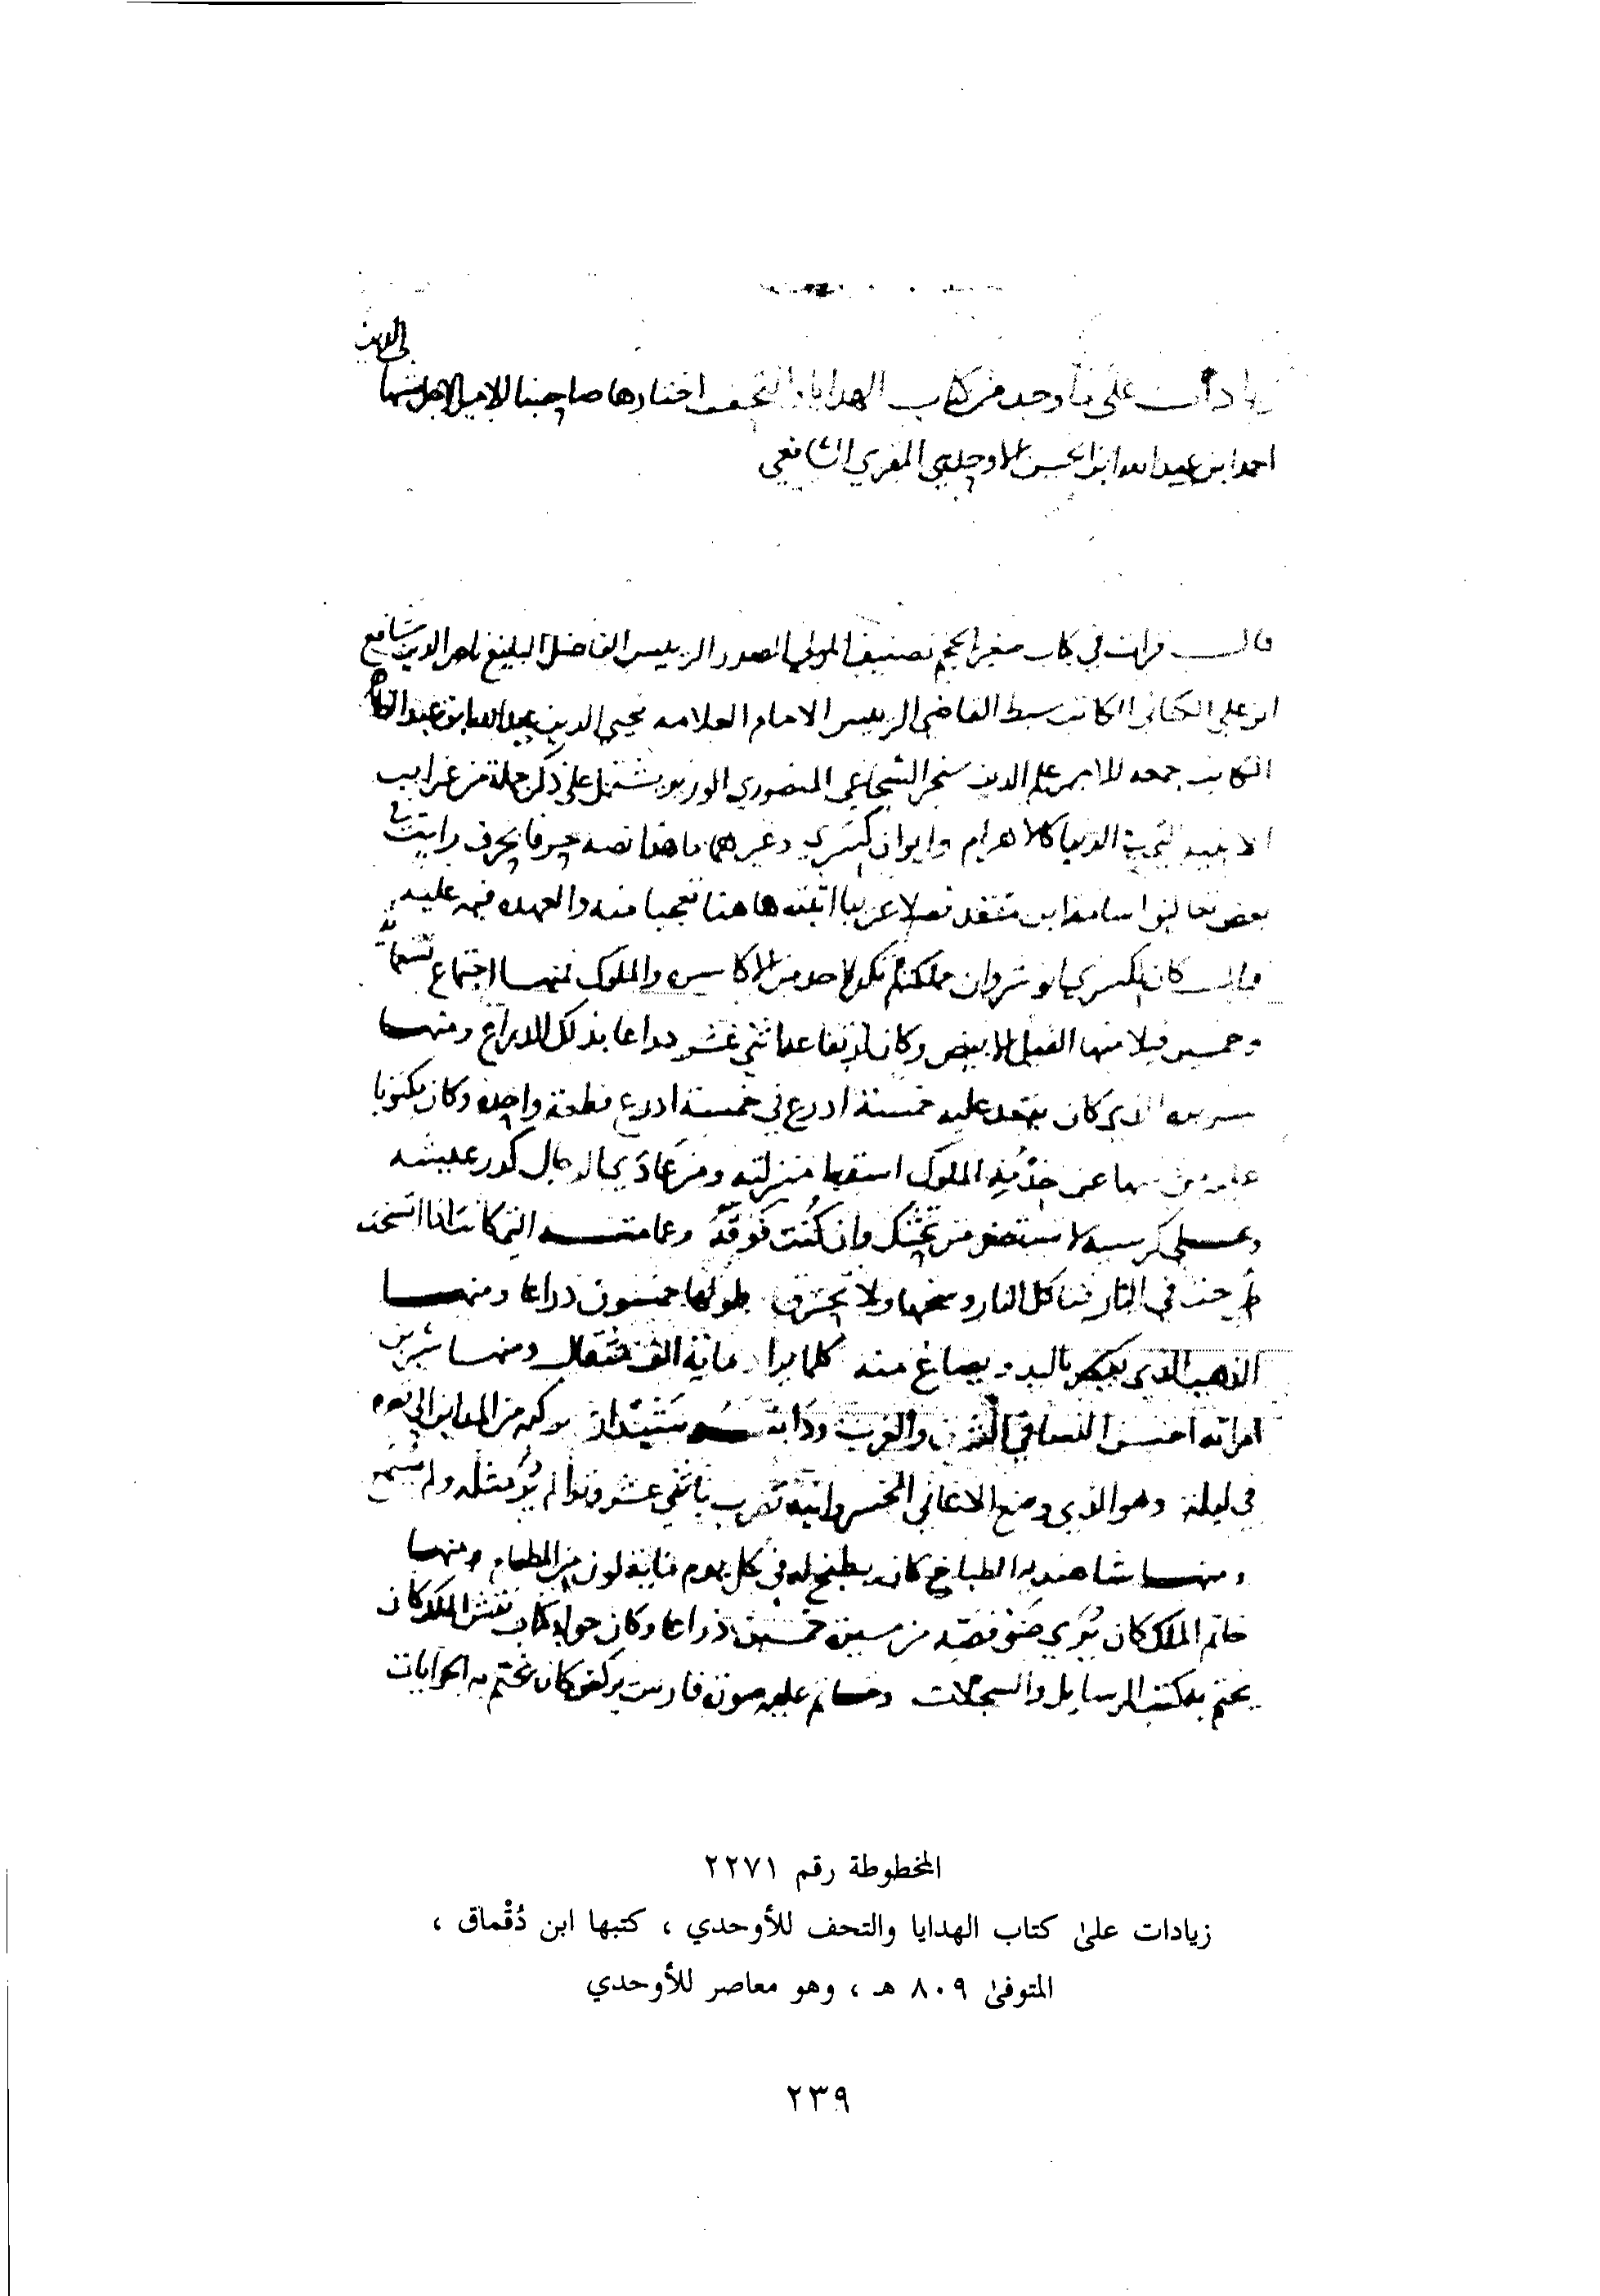 زيادات على ما وجد من كتاب الهدايا والتحف اختارها صاحبنا الامير الاجل شهاب الدين
احمد ابن عبد الله ابن الحسن الاوحدي المقري الشافعي
قال قرات في كتاب صغير الحجم تصنيف المولى الصدر الرييس الفاضل البليغ ناصر الدين شافع
ابن علي الكناني الكاتب سبط القاضي الرييس الامام العلامه محيي الدين عبد الله ابن عبد الظاهر
الكاتب جمعه للامير علم الدين سنجر الشجاعي المنصوري الوزير يشتمل على ذكر جملة من غرايب
الابنيه التي في الدنيا كالاهرام وايوان كسرى وغيرهما ما هذا نصه حرفا بحرف رايت في
بعض تعاليق اسامة ابن منقذ فصلا غريبا اثبته هاهنا تعجبا منه والعهده فيه عليه
قال كان لكسرى انوشروان مملكة لم تكن لاحد من الاكاسره والملوك منها اجتماع تسعماية
وخمسين فيلا منها الفيل الابيض وكان ارتفاعه اثني عشر دراعا بذلك الدراع ومنها
سريره الذي كان يقعد عليه خمسة ادرع في خمسة ادرع قطعة واحده وكان مكتوبا
عليه من سها عن خدمة الملوك استقبا منزلته ومن عادى الرجال كدر عيشه
وعلى كرسيه لا تستصغر من تحتك وان كنت فوقه وعامته التي كانت اذا اتسخت
طرحت في النار فتاكل النار وسخها ولا تحترق طولها خمسون ذراعا ومنها
الذهب الذي يعصر باليد ويصاغ منه كلما يراد ماية الف مثقال ومنها شيرين
امراته احسن النسا في الشرق والغرب ودابته شبديز بركبه من المداين الى
في ليلة وهو الذي وضع الاغاني الخسروانية تضرب باثني عشر وترا لم ير مثله ولم يسمع
ومنها شاهنديه الطباخ كان يطبخ له في كل يوم ماية لون من الطعام ومنها
خاتم الملك كان يرى ضو فصه من مسيرة خمسين ذراعا وكان حوله كتاب نقش الملك كان
يختم به كتب الرسايل والسجلات وخاتم عليه صورة فارس يركض كان يختم به الجوابات
المخطوطة رقم ٢٢٧١
زيادات على كتاب الهدايا والتحف للأوحدي ، كتبها ابن دُقْماق ،
المتوفى ٨٠٩ هـ ، وهو معاصر للأوحدي
٢٣٩